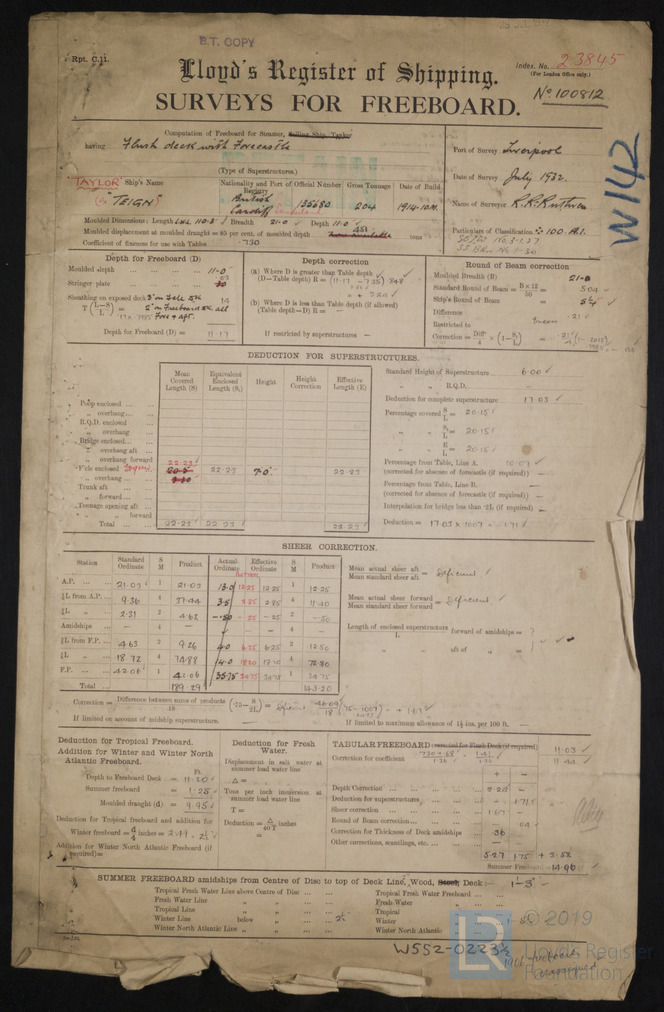 B.T. COPY
Rpt. C.11.
Index. No. 23845
(For London Office only.)
Lloyd's Register of Shipping.
No 100812
SURVEYS FOR FREEBOARD.
W142
Computation of Freeboard for Steamer, Sailing Ship, Tanker
having Flush deck with Forecastle
(Type of Superstructures.)
Port of Survey Liverpool
Date of Survey July 1932
Name of Surveyor R. R. Ruthven
Particulars of Classification 100 A.1.
TAYLOR Ship's Name
(Ex TEIGN)
Nationality and Port of Registry
British
Cardiff
Official Number
135680
Gross Tonnage
204
Date of Build
1914
Moulded Dimensions: Length Breadth 21.0 Depth 11.0
Moulded displacement at moulded draught = 85 per cent. of moulded depth 451 tons
Coefficient of fineness for use with Tables .730
Depth for Freeboard (D)
Moulded depth 11.0
Stringer plate
Sheathing on exposed deck
T (L–S / L) =
Depth for Freeboard (D) = 11.17
Depth correction
(a) Where D is greater than Table depth
(D–Table depth) R =
(b) Where D is less than Table depth (if allowed)
(Table depth–D) R =
If restricted by superstructures
Round of Beam correction
Moulded Breadth (B) 21.0
Standard Round of Beam = B × 12 / 50 = 5.04
Ship's Round of Beam =
Difference
Restricted to
Correction = Diff / 4 × (1 – S₁ / L)
DEDUCTION FOR SUPERSTRUCTURES.
Mean Covered Length (S) Equivalent Enclosed Length (S₁) Height Height Correction Effective Length (E)
Poop enclosed
„ overhang
R.Q.D. enclosed
„ overhang
Bridge enclosed
„ overhang aft
„ overhang forward
F'cle enclosed 22.23 22.23 7.0 22.23
„ overhang
Trunk aft
„ forward
Tonnage opening aft
„ forward
Total 22.23 22.23 22.23
Standard Height of Superstructure 6.00
„ „ R.Q.D.
Deduction for complete superstructure 17.03
Percentage covered S / L = 20.15
„ S₁ / L = 20.15
„ E / L = 20.15
Percentage from Table, Line A. 10.07
(corrected for absence of forecastle (if required))
Percentage from Table, Line B.
(corrected for absence of forecastle (if required))
Interpolation for bridge less than .2L (if required)
Deduction = 17.03 × .1007 = 1.71
SHEER CORRECTION.
Station Standard Ordinate S M Product Actual Ordinate Effective Ordinate S M Product
A.P. 21.03 1 21.03 13.0 12.25 12.25 1 12.25
⅙L from A.P. 9.36 4 37.44 3.5 2.85 2.85 4 11.40
⅓L „ 2.31 2 4.62 -.50 -.25 -.25 2 -.50
Amidships 4 4
⅓L from F.P. 4.63 2 9.26 4.0 6.25 6.25 2 12.50
⅙L „ 18.72 4 74.88 4
F.P. 42.06 1 42.06 34.75 1 34.75
Total 189.29 143.20
Mean actual sheer aft / Mean standard sheer aft = Deficient
Mean actual sheer forward / Mean standard sheer forward = Deficient
Length of enclosed superstructure / L forward of amidships =
„ aft of „ =
Correction = Difference between sums of products / 18 (.75 – S / 2L) = 46.09 / 18 (.75 – .1007)
If limited on account of midship superstructure.
If limited to maximum allowance of 1½ ins. per 100 ft.
Deduction for Tropical Freeboard.
Addition for Winter and Winter North Atlantic Freeboard.
Ft.
Depth to Freeboard Deck = 11.20
Summer freeboard = 1.25
Moulded draught (d) = 9.95
Deduction for Tropical freeboard and addition for
Winter freeboard = d / 4 inches = 2.49 = 2½
Addition for Winter North Atlantic Freeboard (if required) =
Deduction for Fresh Water.
Displacement in salt water at summer load water line
Δ =
Tons per inch immersion at summer load water line
T =
Deduction = Δ / 40 T inches
=
TABULAR FREEBOARD corrected for Flush Deck (if required) 11.03
Correction for coefficient .730 + .68 / 1.36 = 1.41 / 1.36 11.44
+ –
Depth Correction 3.20
Deduction for superstructures 1.71
Sheer correction
Round of Beam correction .04
Correction for Thickness of Deck amidships .36
Other corrections, scantlings, etc.
1.75 + 3.52
Summer Freeboard = 14.96
SUMMER FREEBOARD amidships from Centre of Disc to top of Deck Line, Wood, Steel, Deck: 1-3
Tropical Fresh Water Line above Centre of Disc
Fresh Water Line „ „
Tropical Line „ „
Winter Line below „ 2½
Winter North Atlantic Line „ „
Tropical Fresh Water Freeboard
Fresh Water „
Tropical „
Winter „
Winter North Atlantic „
W552-0223½
1906 freeboard unassigned
© 2019
Lloyd's Register
Foundation
LR